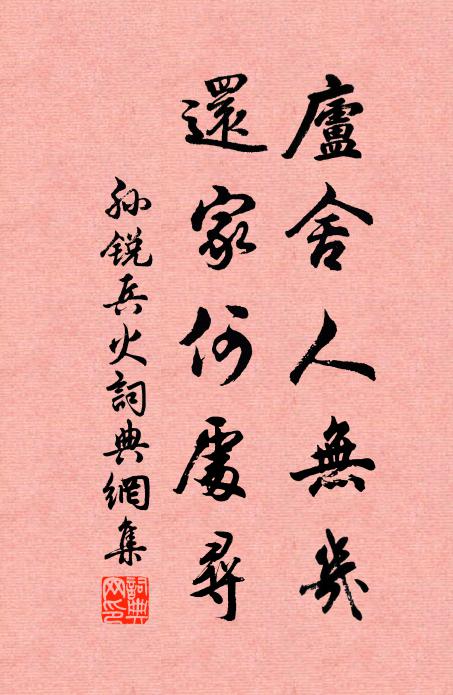 廬舍人無幾
還家何處尋
孫銳兵火詞典網集
詞典網印